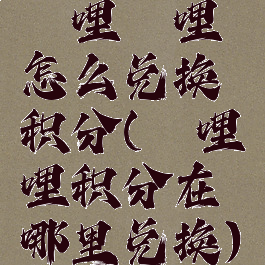 哩 哩
怎么兑换
积分( 哩
哩积分在
哪里兑换)